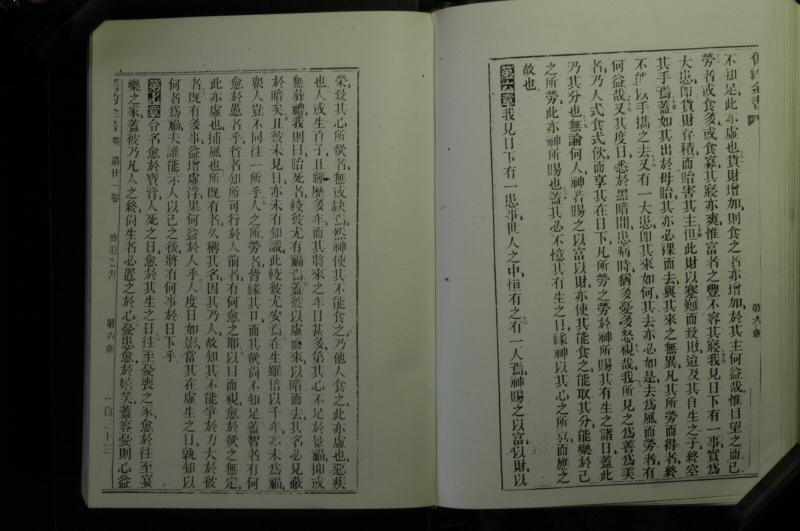 舊約全書
第六章
不知足、此亦虛也、貨財增加、則食之者亦增加、於其主何益哉、惟目望之而已、
勞者或食多或食寡、其寢亦爽、惟富者之豐不容其寢、我見日下有一事實爲
大患、卽貨財存積而貽害其主、但此財以蹇難而致財、迨及其自生之子、終空
其手焉、蓋如其出於母胎、其亦必裸而去、與其來之無異、凡其所勞而得者、終
不能以手攜之去、又有一大患、卽其來如何、其去亦必如是、去爲風而勞者、有
何益哉、又其度日悉於黑暗間、患病時猶多憂多怒、視哉、我所見之爲善爲美
者、乃人式食式飲、而享其在日下凡所勞之勞、於神所賜其有生之諸日、蓋此
乃其分也、無論何人、神若賜之以富以財、亦使其能食之、能取其分、能樂於己
之所勞、此亦神所賜也、蓋其必不憶其有生之日、緣神以其心之所喜而應之
故也、
第六章 我見日下有一患、事世人之中恒有之、有一人焉、神賜之以富以財以
榮、致其心所欲者、無或缺焉、然神使其不能食之、乃他人食之、此亦虛也、惡疾
也、人或生百子、且經歷多年、而其將來之年日甚多、第其心不足於景福、抑或
無葬禮、我則曰、胎死者較彼尤有福焉、蓋彼以虛而來、以暗而去、其名必見蔽
於暗矣、且彼未見日、亦未有知識、此較彼尤安焉、在生雖倍以千年、亦未爲福、
衆人豈不同往一所乎、人之所勞者、皆緣其口、而其欲尚不知足、蓋智者有何
愈於愚者乎、貧者知所可行於人前者、有何愈之耶、以目而視、愈於欲之無定、
此亦虛也、捕風也、所既有者、久稱其名、因其乃人、故知其不能爭於力大於彼
者、既有多事益增虛浮、果何益於人乎、人度日如影、當其在虛生之日、孰知以
何者爲福、夫誰能示人以己之後、將有何事於日下乎、
第七章 令名愈於寶膏、人死之日、愈於其生之日、往至憂喪之家、愈於往至宴
樂之家、蓋彼乃凡人之終、尚生者必置之於心、憂患愈於嬉笑、蓋容憂則心益
第廿一卷
第六章
一百三十三